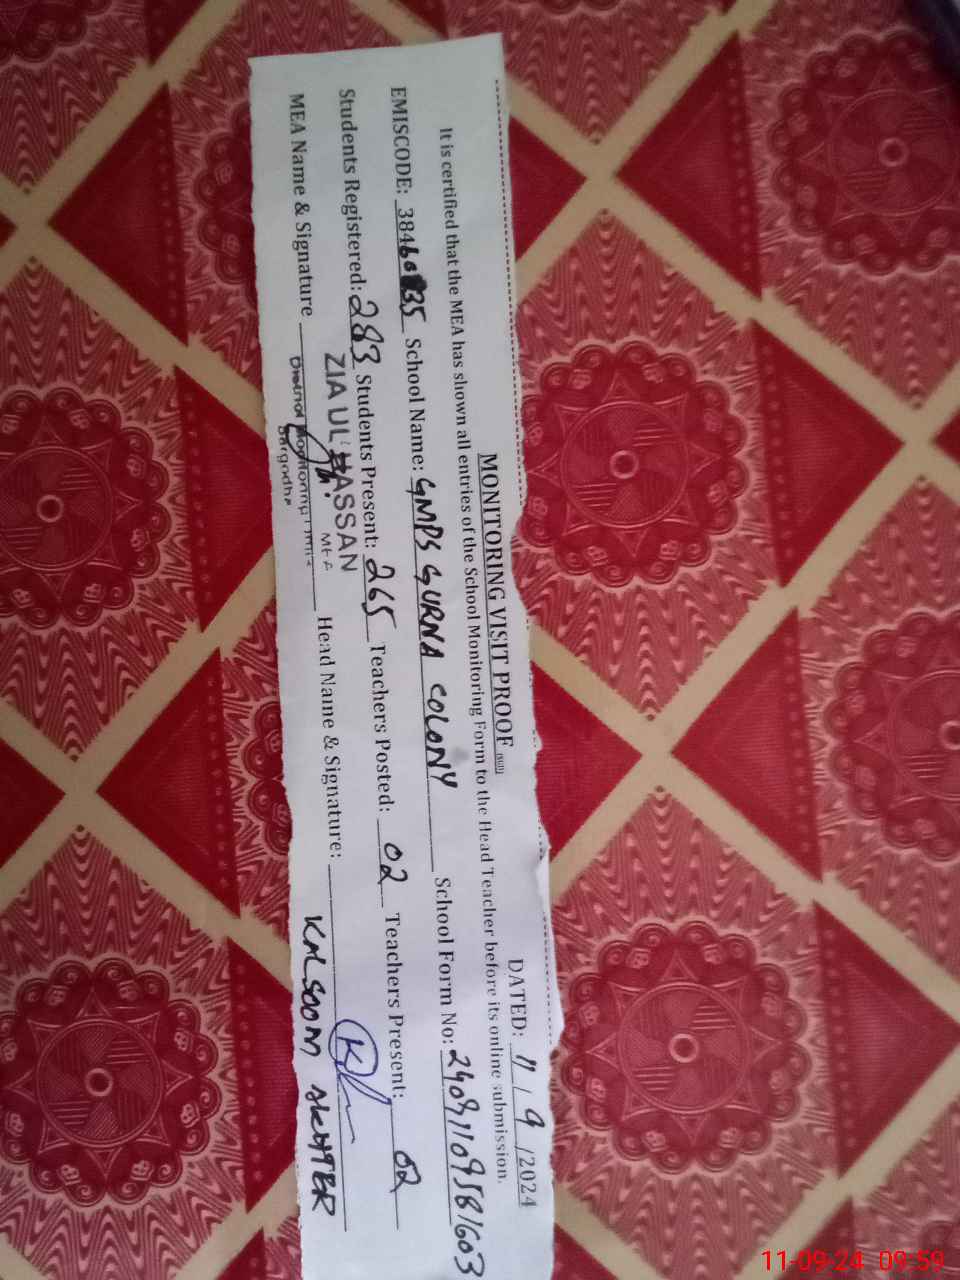 MONITORING VISIT PROOF
DATED: 11 / 9 /2024
It is certified that the MEA has shown all entries of the School Monitoring Form to the Head Teacher before its online submission.
EMISCODE: 38460 35 School Name: GMPS SURNA COLONY School Form No: 24091109581603
Students Registered: 283 Students Present: 265 Teachers Posted: 02 Teachers Present: 02
ZIA UL HASSAN
MEA
MEA Name & Signature Head Name & Signature:
District Monitoring
Sargodha
KALSOOM AKHTER
11-09-24 09:59